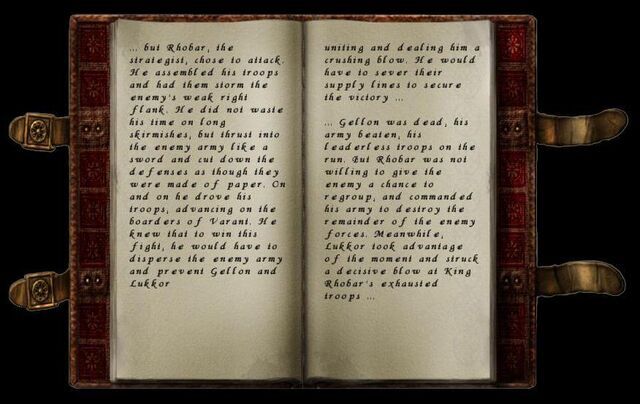 ... but Rhobar, the
strategist, chose to attack.
He assembled his troops
and had them storm the
enemy's weak right
flank. He did not waste
his time on long
skirmishes, but thrust into
the enemy army like a
sword and cut down the
defenses as though they
were made of paper. On
and on he drove his
troops, advancing on the
boarders of Varant. He
knew that to win this
fight, he would have to
disperse the enemy army
and prevent Gellon and
Lukkor
uniting and dealing him a
crushing blow. He would
have to sever their
supply lines to secure
the victory ...
... Gellon was dead, his
army beaten, his
leaderless troops on the
run. But Rhobar was not
willing to give the
enemy a chance to
regroup, and commanded
his army to destroy the
remainder of the enemy
forces. Meanwhile,
Lukkor took advantage
of the moment and struck
a decisive blow at King
Rhobar's exhausted
troops ...